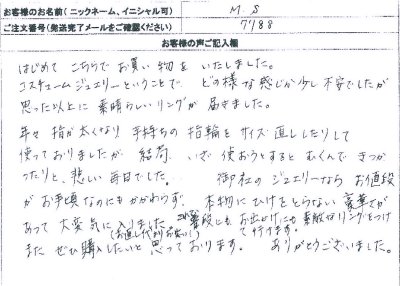 お客様のお名前(ニックネーム、イニシャル可)
M. S
ご注文番号(発送完了メールをご確認ください)
7488
お客様の声ご記入欄
はじめて こちらで お買い物を いたしました。
コスチュームジュエリーということで どの様な感じか少し不安でしたが
思った以上に 素晴らしいリングが 届きました。
年々 指が太くなり 手持ちの 指輪を サイズ直ししたりして
使っておりましたが 結局 いざ使おうとすると むくんで きつか
ったりと、悲しい 毎日でした… 御社の ジュエリーなら お値段
が お手頃なのにもかかわらず 本物に ひけをとらない 豪華さが
あって 大変気に入りました
(お直し代よりお安い!)
普段にも お出かけにも素敵なリングをつけ
て行けます。
また ぜひ購入したいと思っております。 ありがとうございました。